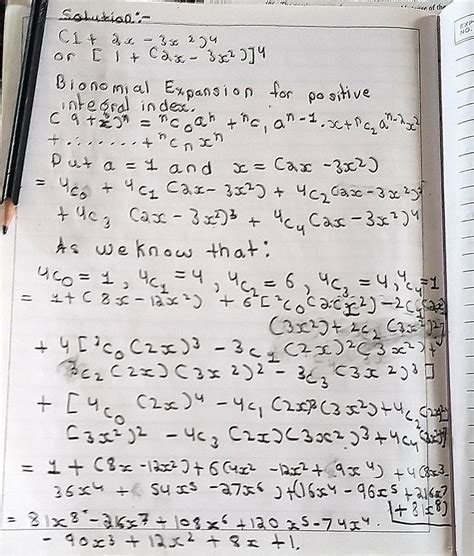 Solution:-
(1 + 2x - 3x²)⁴
or [1 + (2x - 3x²)]⁴
Bionomial Expansion for positive
integral index.
(a+x)ⁿ = ⁿC₀aⁿ + ⁿC₁ aⁿ⁻¹.x + ⁿC₂ aⁿ⁻²x²
+ ........ + ⁿCₙxⁿ
Put a = 1 and x = (2x - 3x²)
= ⁴C₀ + ⁴C₁ (2x - 3x²) + ⁴C₂ (2x - 3x²)²
+ ⁴C₃ (2x - 3x²)³ + ⁴C₄ (2x - 3x²)⁴
As we know that:
⁴C₀ = 1, ⁴C₁ = 4, ⁴C₂ = 6, ⁴C₃ = 4, ⁴C₄ = 1
= 1 + (8x - 12x²) + 6[²C₀(2x)²) - 2C₁(2x)
(3x²) + 2C₂ (3x²)²]
+ 4[³C₀ (2x)³ - 3C₁ (2x)² (3x²) +
3C₂ (2x) (3x²)² - 3C₃ (3x²)³]
+ [⁴C₀ (2x)⁴ - 4C₁ (2x)³(3x²) + 4C₂ (2x)²
(3x²)² - 4C₃ (2x)(3x²)³ + 4C₄
= 1 + (8x - 12x²) + 6(4x² - 12x² + 9x⁴) + 4(8x³ -
36x⁴ + 54x⁵ - 27x⁶) + (16x⁴ - 96x⁵ + 216x⁶
+ 81x⁸)
= 81x⁸ - 216x⁷ + 108x⁶ + 120x⁵ - 74x⁴
- 90x³ + 12x² + 8x + 1.